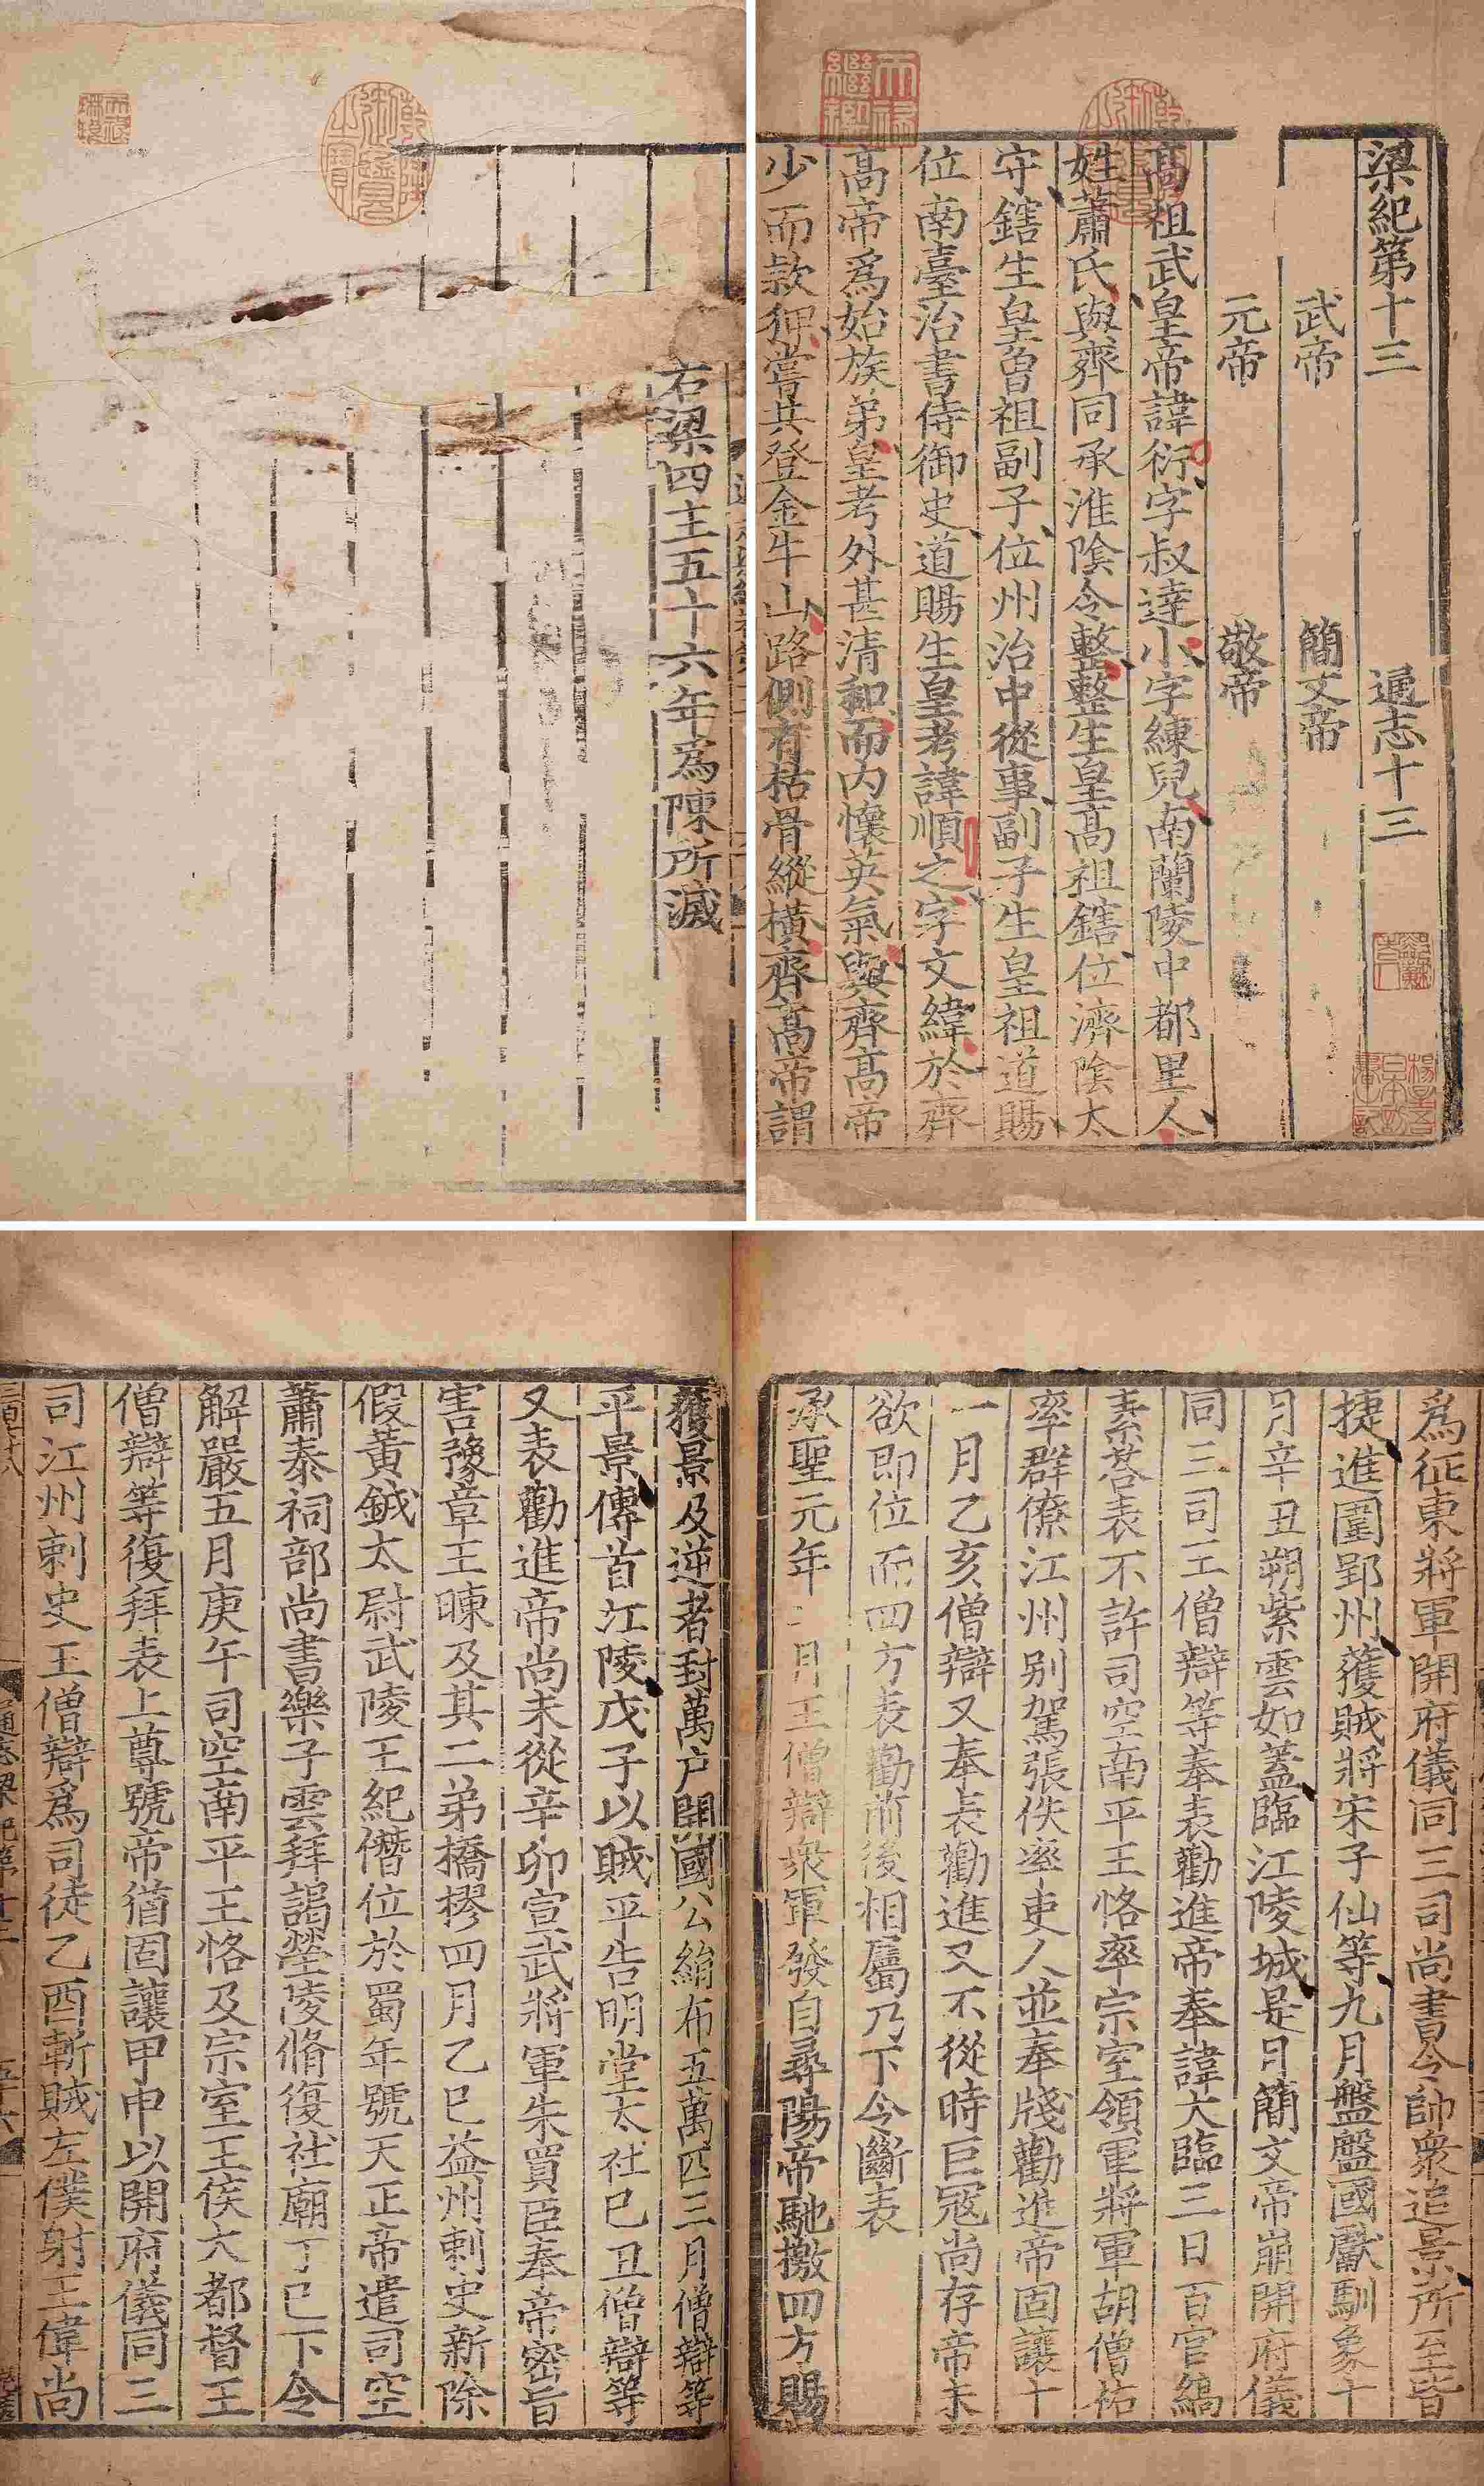 梁紀第十三 通志十三
武帝 簡文帝
元帝 敬帝
高祖武皇帝諱衍字叔達小字練兒南蘭陵中都里人
姓蕭氏與齊同承淮陰令整整生皇高祖鎋位濟陰太
守鎋生皇曾祖副子位州治中從事副子生皇祖道賜
位南臺治書侍御史道賜生皇考諱順之字文緯於齊
高帝爲始族弟皇考外甚清和而内懷英氣與齊高帝
少而款狎嘗共登金牛山路側有枯骨縱橫齊高帝謂
右梁四主五十六年爲陳所滅
爲征東將軍開府儀同三司尚書令帥衆追景所至皆
捷進圍郢州獲賊將宋子仙等九月盤盤國獻馴象十
月辛丑朔紫雲如蓋臨江陵城是日簡文帝崩開府儀
同三司王僧辯等奉表勸進帝奉諱大臨三日百官縞
素荅表不許司空南平王恪率宗室領軍將軍胡僧祐
率群僚江州别駕張佚率吏人並奉牋勸進帝固讓十
一月乙亥僧辯又奉表勸進又不從時巨寇尚存帝未
欲即位而四方表勸前後相屬乃下令斷表
承聖元年二月王僧辯衆軍發自尋陽帝馳檄四方賜
獲景及逆者封萬户開國公絹布五萬匹三月僧辯等
平景傳首江陵戊子以賊平告明堂太社己丑僧辯等
又表勸進帝尚未從辛卯宣武將軍朱買臣奉帝密旨
害豫章王暕及其二弟橋樛四月乙巳益州刺史新除
假黃鉞太尉武陵王紀僭位於蜀年號天正帝遣司空
蕭泰祠部尚書樂子雲拜謁塋陵脩復社廟丁巳下令
解嚴五月庚午司空南平王恪及宗室王侯大都督王
僧辯等復拜表上尊號帝猶固讓甲申以開府儀同三
司江州刺史王僧辯爲司徒乙酉斬賊左僕射王偉尚